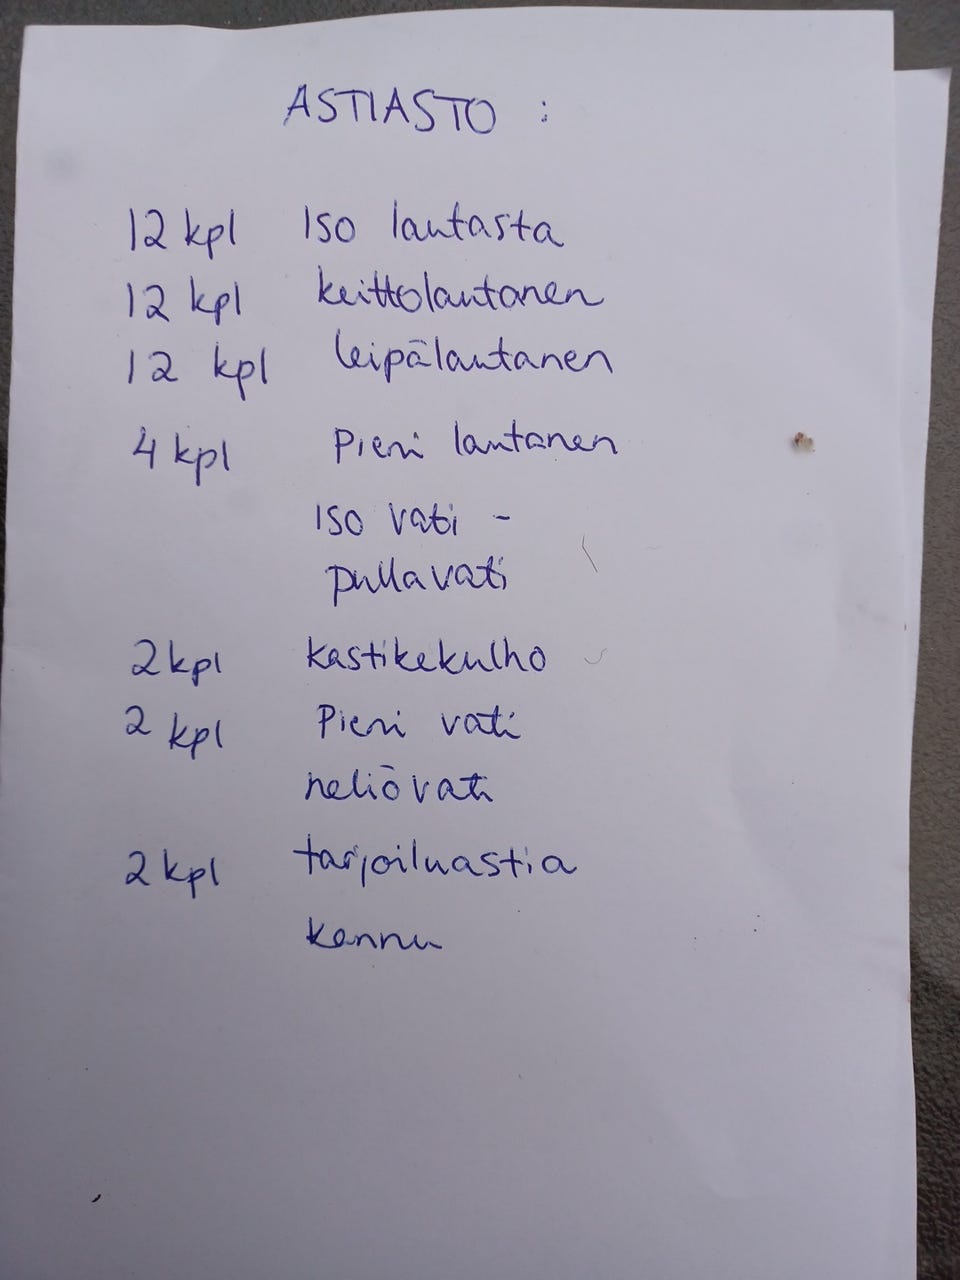 ASTIASTO :
12 kpl Iso lautasta
12 kpl keittolautanen
12 kpl leipälautanen
4 kpl Pieni lautanen
Iso vati -
pullavati
2 kpl kastikekulho
2 kpl Pieni vati
neliövati
2 kpl tarjoiluastia
kannu